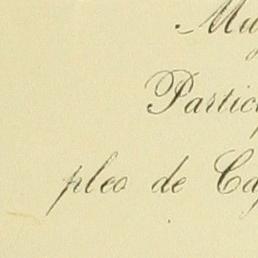 Mu
Partic
pleo de Ca